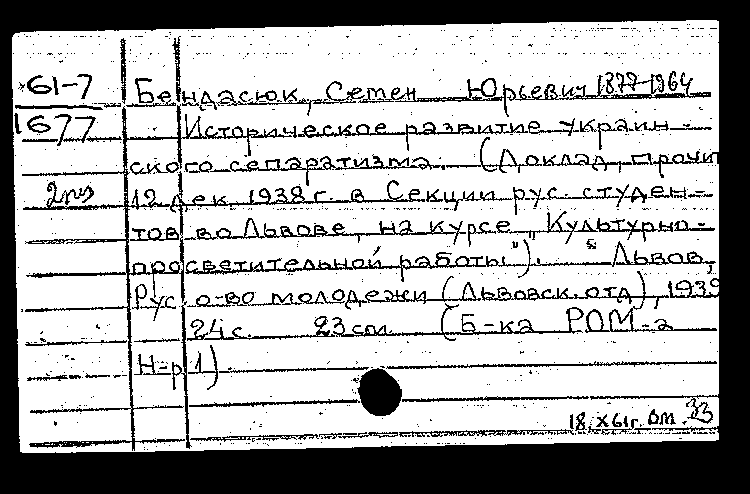 61-7
1677
2пз
Бендасюк, Семен Юрьевич 1877-1964
Историческое развитие украин-
ского сепаратизма. (Доклад, прочит
12 дек. 1938 г. в Секции рус. студен-
тов во Львове, на курсе „Культурно-
просветительной работы"). Львов,
Рус. о-во молодежи (Львовск. отд), 1939
24 с. 23 см (Б-ка РОМ-а
Н-р 1)
18.X 61г. ВМ. 33